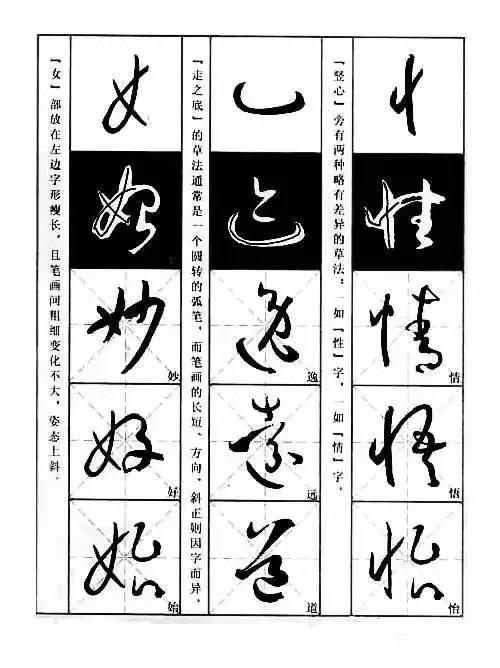 忄
性
情
悟
怡
「竖心」旁有两种略有差异的草法：一如「性」字，一如「情」字。
辶
逸
远
道
「走之底」的草法通常是一个圆转的弧笔，而笔画的长短、方向、斜正则因字而异。
女
妙
好
始
「女」部放在左边字形瘦长，且笔画间粗细变化不大，姿态上斜。